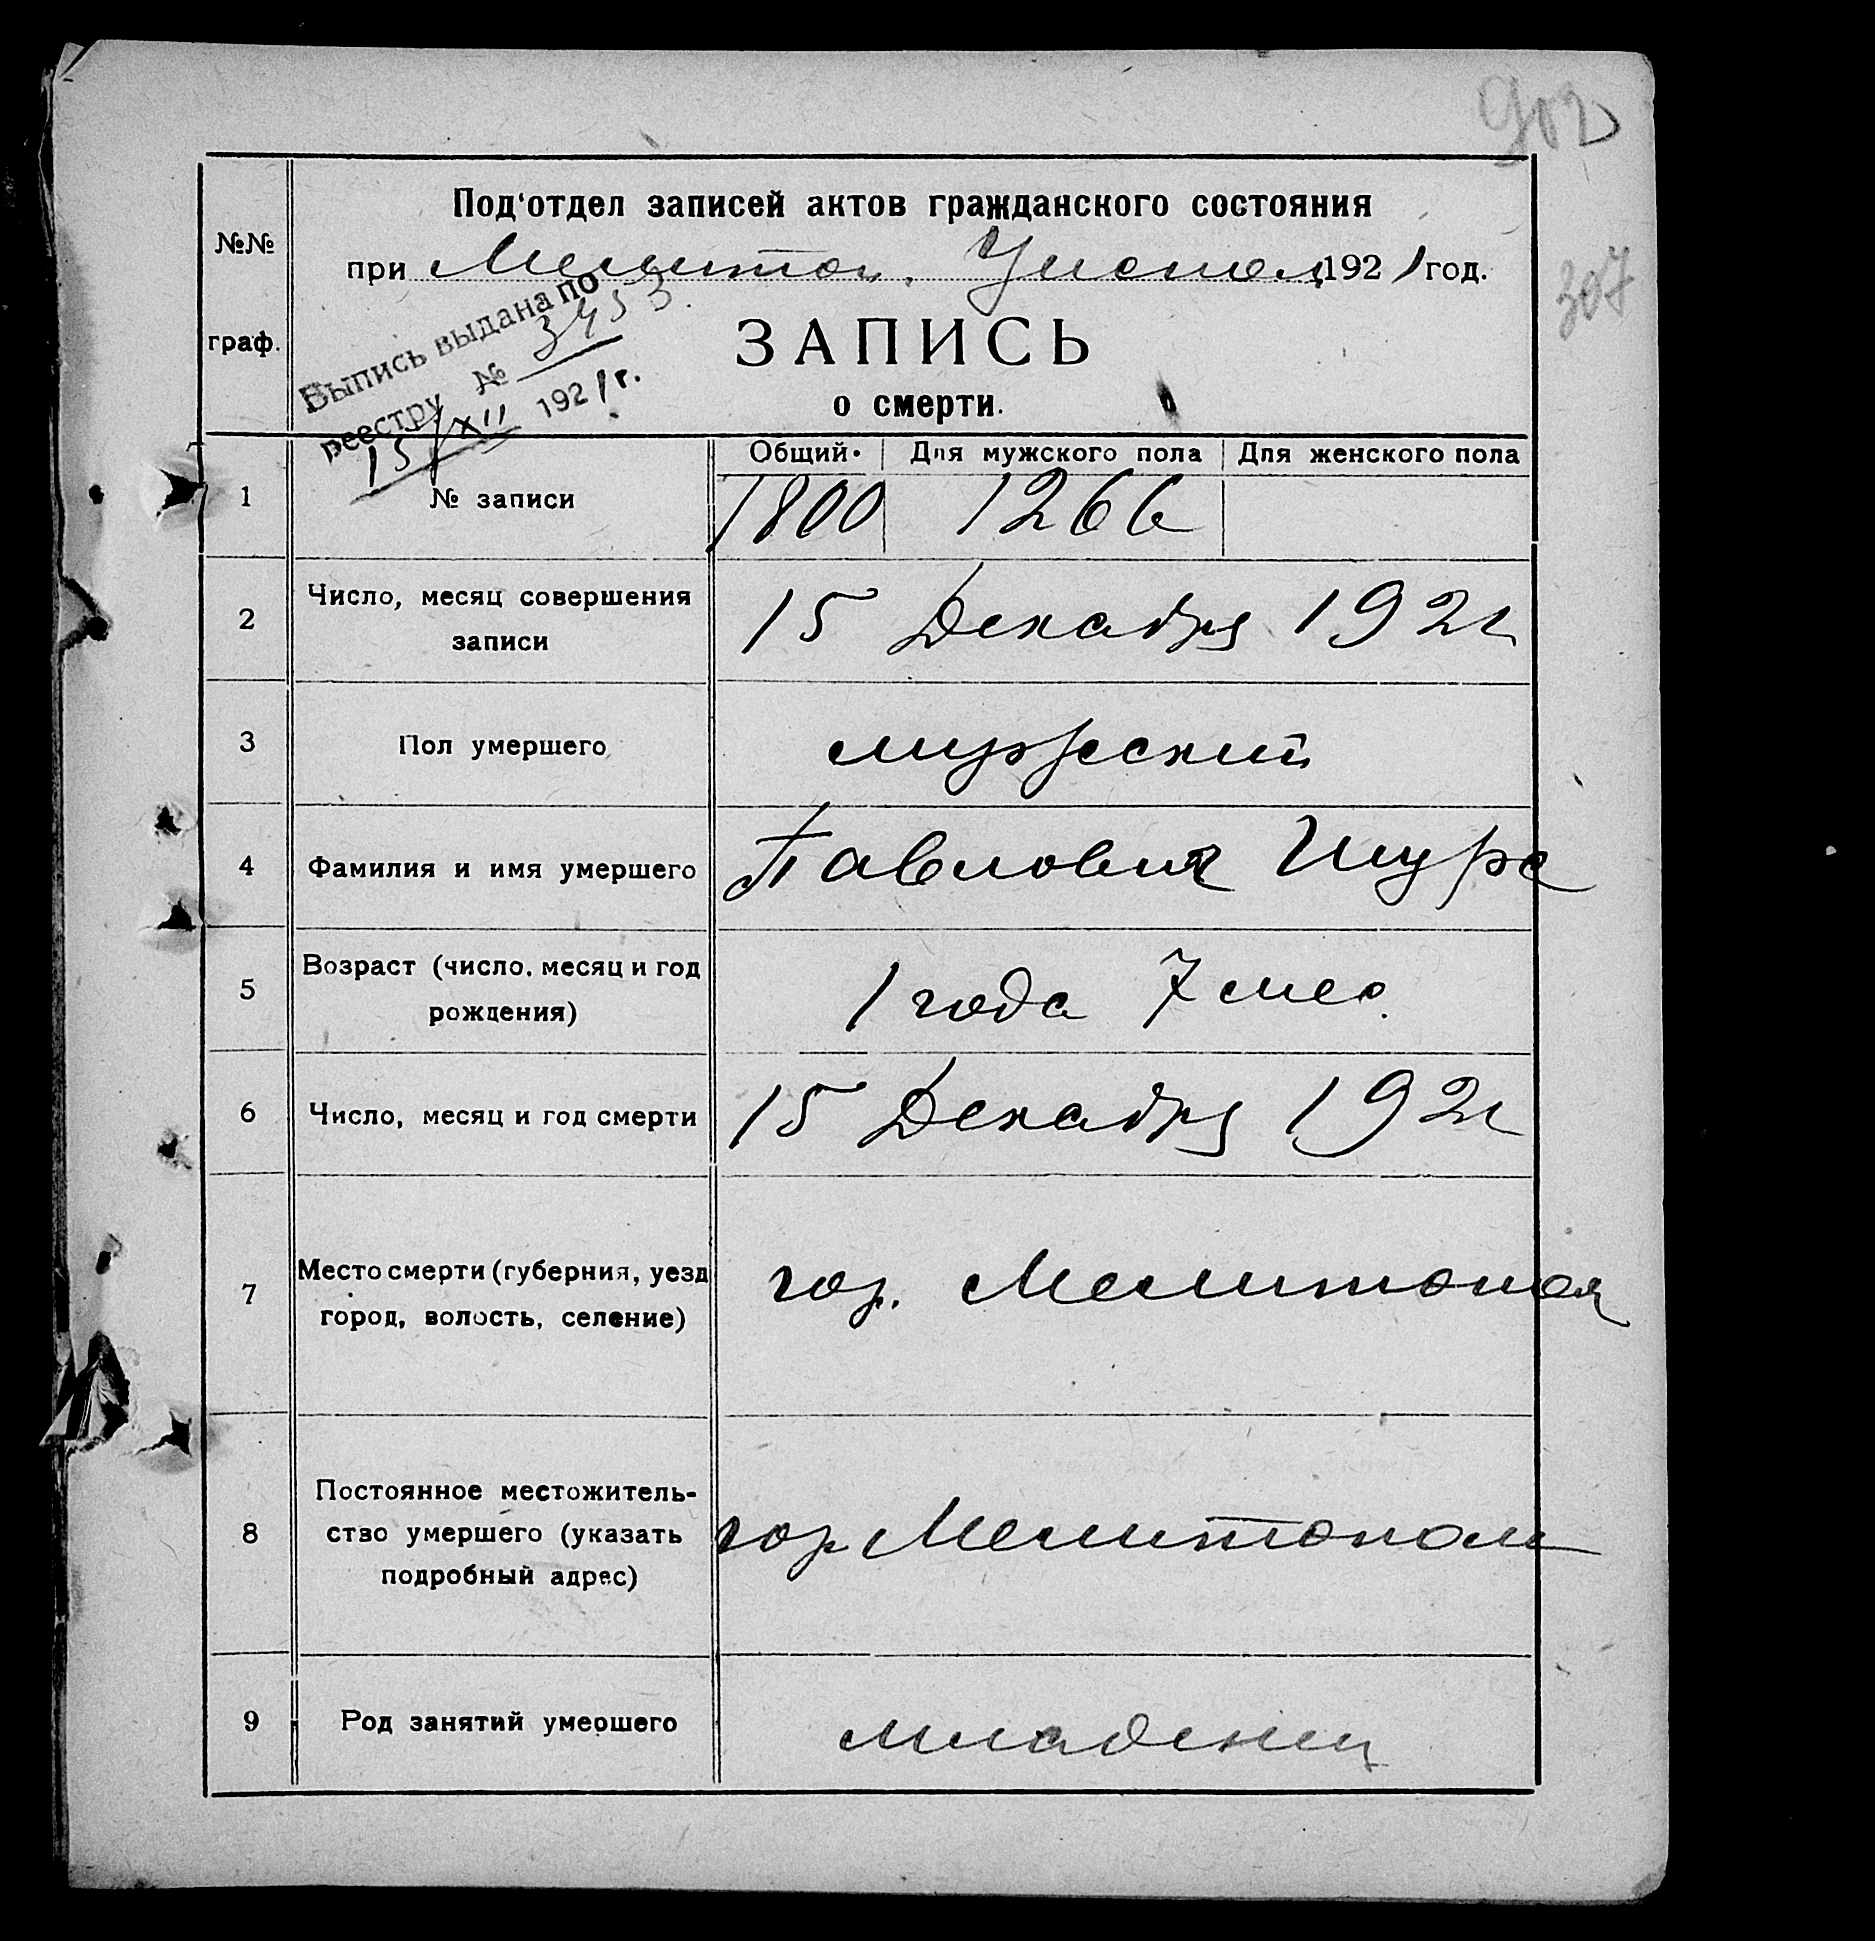 902
307
№№
граф.
Под‘отдел записей актов гражданского состояния
при Мелитоп. Уисполк 1921 год.
Выпись выдана по
реестру № 3453.
15/XII 1921 г.
ЗАПИСЬ
о смерти.
Общий. Для мужского пола Для женского пола
1 № записи 1800 1266
2 Число, месяц совершения
записи
15 Декабря 1921
3 Пол умершего мужеский
4 Фамилия и имя умершего Павлович Шура
5 Возраст (число, месяц и год
рождения)
1 года 7 мес.
6 Число, месяц и год смерти 15 Декабря 1921
7 Место смерти (губерния, уезд
город, волость, селение)
гор. Мелитополя
8 Постоянное местожитель-
ство умершего (указать
подробный адрес)
гор Мелитополе
9 Род занятий умершего младенец